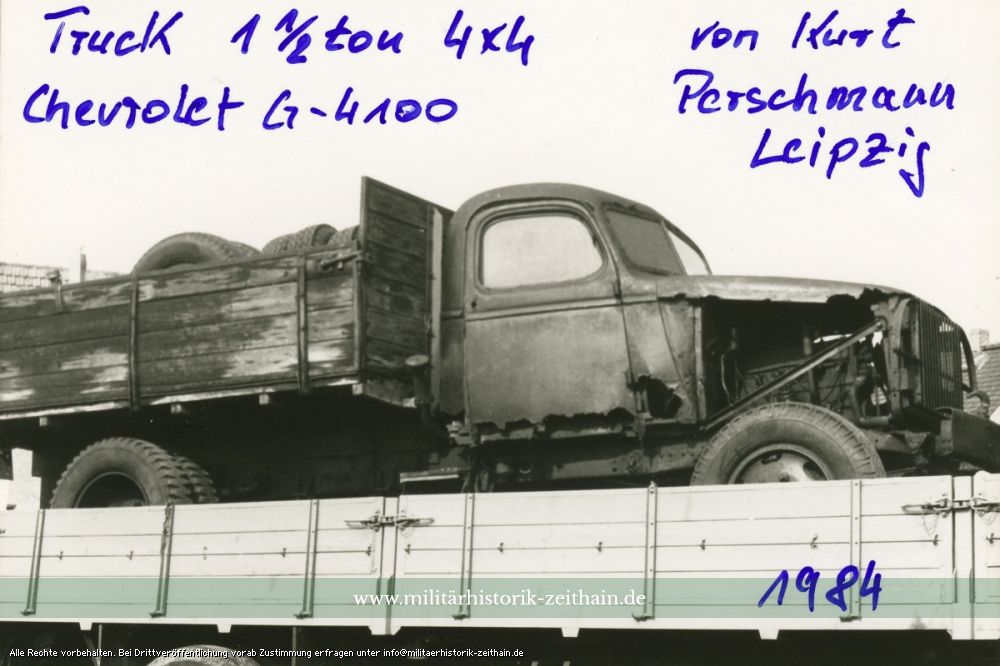 Truck 1 1/2 ton 4x4
Chevrolet G-4100
von Kurt
Perschmann
Leipzig
1984
www.militärhistorik-zeithain.de
Alle Rechte vorbehalten. Bei Drittveröffentlichung vorab Zustimmung erfragen unter info@militaerhistorik-zeithain.de